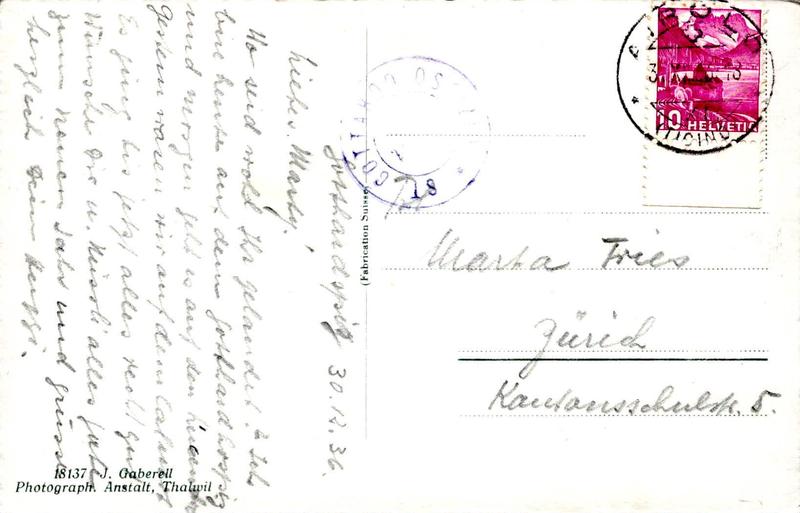 Gotthardspiz 30.12.36.
Liebes Marty!
Wo seid wohl Ihr gelandet? Ich
bin heute auf dem Gotthardhospiz
und morgen geht es auf den
Gestern waren wir auf dem
Es ging bis jetzt alles recht gut.
Wünsche Dir u. alles gute
zum neuen Jahr und grüsse
herzlich Dein
18137 J. Gaberell
Photograph. Anstalt, Thalwil
(Fabrication Suisse)
ST. GOTTHARD
AIROLO
(TICINO)
10 HELVETIA
Marta Fries
Zürich
Kantonsschulstr. 5.